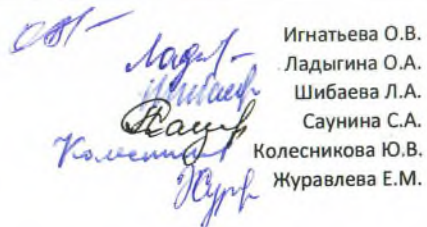 Игнатьева О.В.
Ладыгина О.А.
Шибаева Л.А.
Саунина С.А.
Колесникова Ю.В.
Журавлева Е.М.